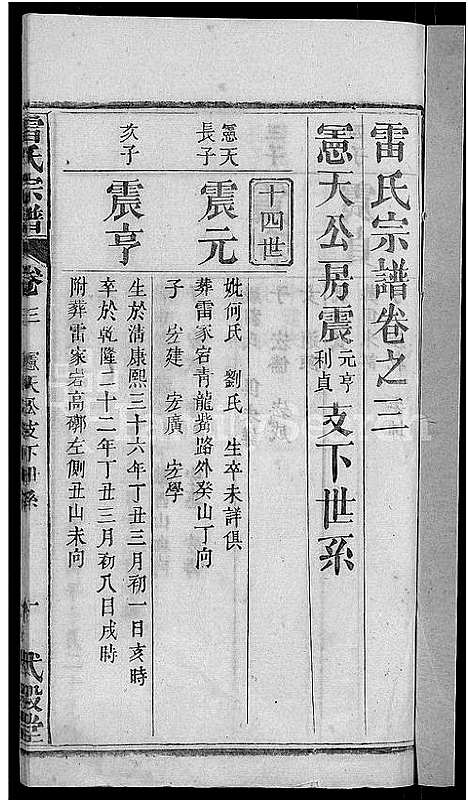 雷氏宗譜卷之三
憲天公房震元亨利貞支下世系
十四世
憲天長子
震元
妣何氏 劉氏 生卒未詳俱
葬雷家岩青龍嘴路外癸山丁向
子 宏建 宏廣 宏學
次子
震亨
生於清康熙三十六年丁丑三月初一日亥時
卒於乾隆二十二年丁丑三月初八日戌時
附葬雷家岩高磡左側丑山未向
雷氏宗譜
卷三
憲天公支下世系
十
式穀堂